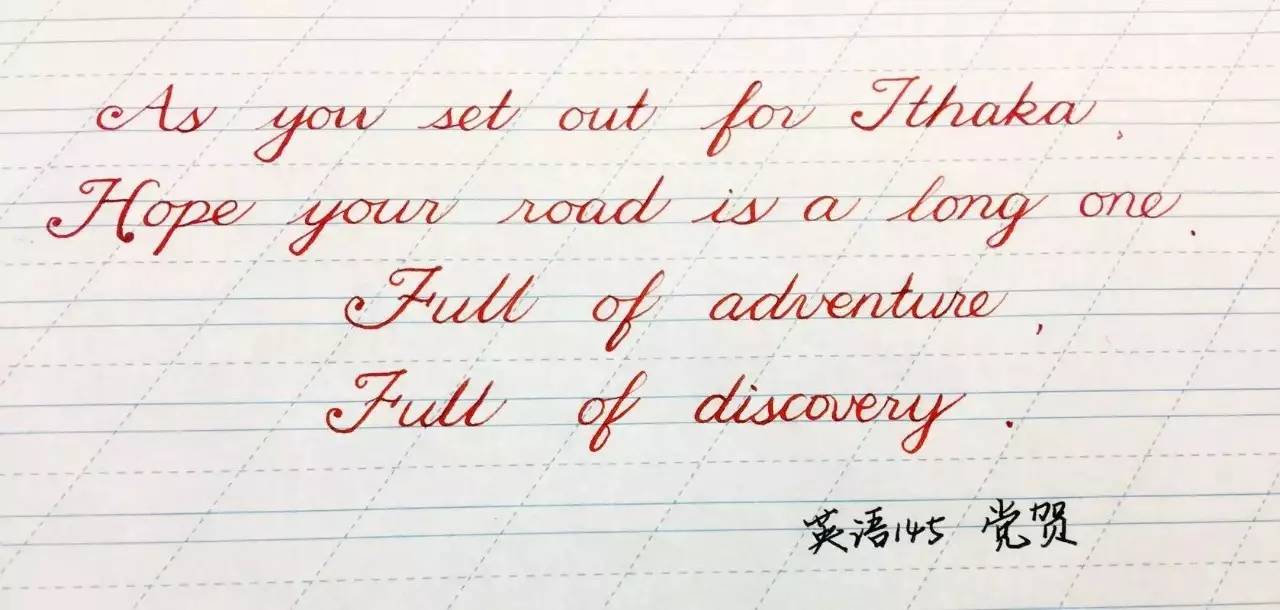 As you set out for Ithaka,
Hope your road is a long one.
Full of adventure,
Full of discovery.
英语145 党贺